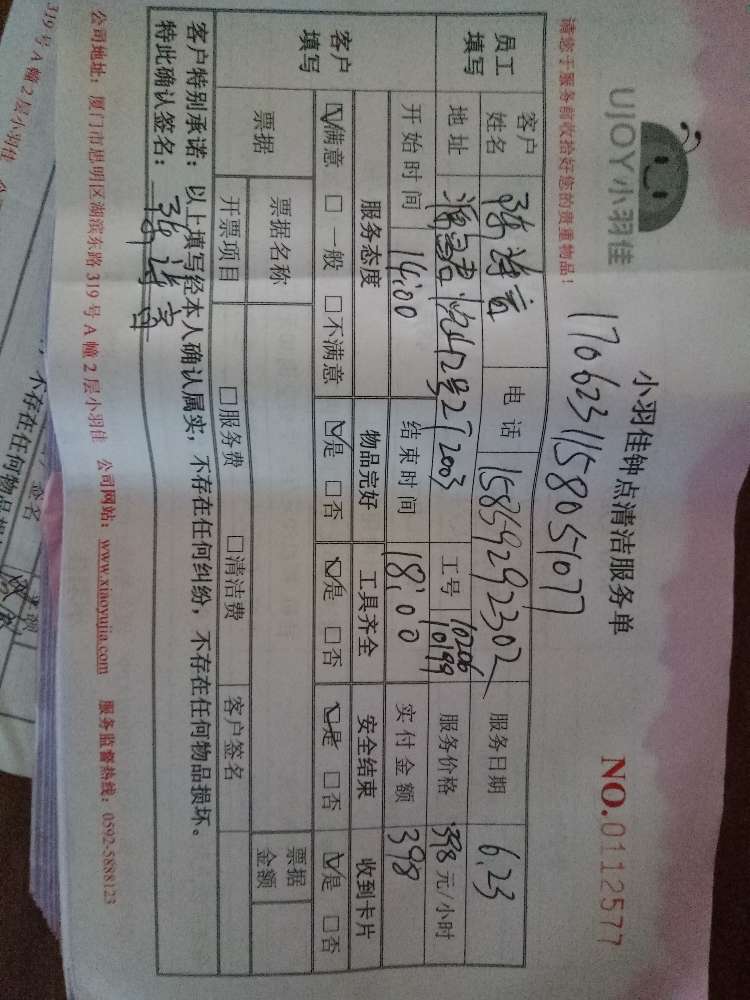 UJOY小羽佳
小羽佳钟点清洁服务单
NO.0112577
1706231158051077
请您于服务前收拾好您的贵重物品！
员工填写
客户姓名
电话 15859292302
服务日期 6.23
地址
2003
工号 10206 10199
服务价格 398 元/小时
开始时间 14:00
结束时间 18:00
实付金额 398
客户填写
服务态度 物品完好 工具齐全 安全结束 收到卡片
☑满意 □一般 □不满意 ☑是 □否 ☑是 □否 ☑是 □否 ☑是 □否
票据 票据名称 票据金额
开票项目 □服务费 □清洁费 客户签名
客户特别承诺：以上填写经本人确认属实，不存在任何纠纷，不存在任何物品损坏。
特此确认签名：
公司地址：厦门市思明区湖滨东路 319 号 A 幢 2 层小羽佳 公司网站：www.xiaoyujia.com 服务监督热线：0592-5888123
319 号 A 幢 2 层小羽佳
不存在任何物品损
签名